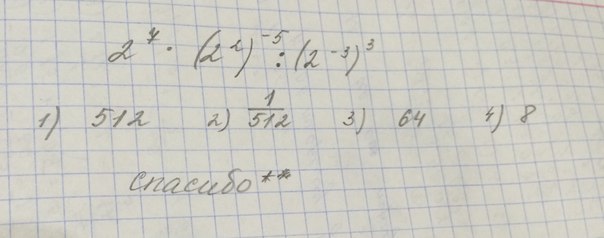 2⁷ · (2²)⁻⁵ : (2⁻³)³
1) 512 2) 1/512 3) 64 4) 8
спасибо **